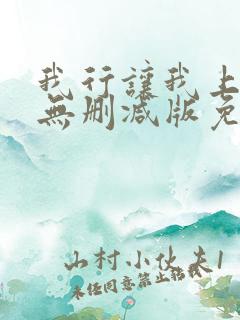 我行讓我上
無刪减版免
山村小伙夫1
未经同意禁止转载